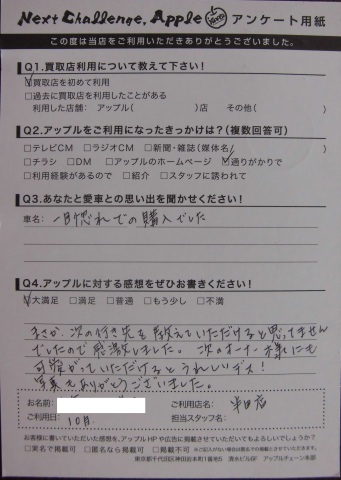 Next Challenge, Apple アンケート用紙
この度は当店をご利用いただきありがとうございました。
Q1.買取店利用について教えて下さい!
□買取店を初めて利用
□過去に買取店を利用したことがある
利用した店舗: アップル( )店 その他( )
Q2.アップルをご利用になったきっかけは?(複数回答可)
□テレビCM □ラジオCM □新聞・雑誌(媒体名 )
□チラシ □DM □アップルのホームページ □通りがかりで
□利用経験があるので □紹介 □スタッフに誘われて
Q3.あなたと愛車との思い出を聞かせください!
車名: 一目惚れでの購入でした
Q4.アップルに対する感想をぜひお書きください!
□大満足 □満足 □普通 □もう少し □不満
まさか、次の行き先を教えていただけると思ってません
でしたので感激しました。次のオーナー様にも
可愛がっていただけるとうれしいデス!
写真もありがとうございました。
お名前: ご利用店名: 半田店
ご利用日: 10月 担当スタッフ名:
お客様に書いていただいた感想を、アップルHPや広告に掲載させていただいてもよろしいでしょうか?
□実名で掲載可 □匿名なら掲載可 □掲載不可 ※ご記入がない場合は匿名での掲載させていただきます。
東京都千代田区神田岩本町1番地5 清水ビル6F アップルチェーン本部